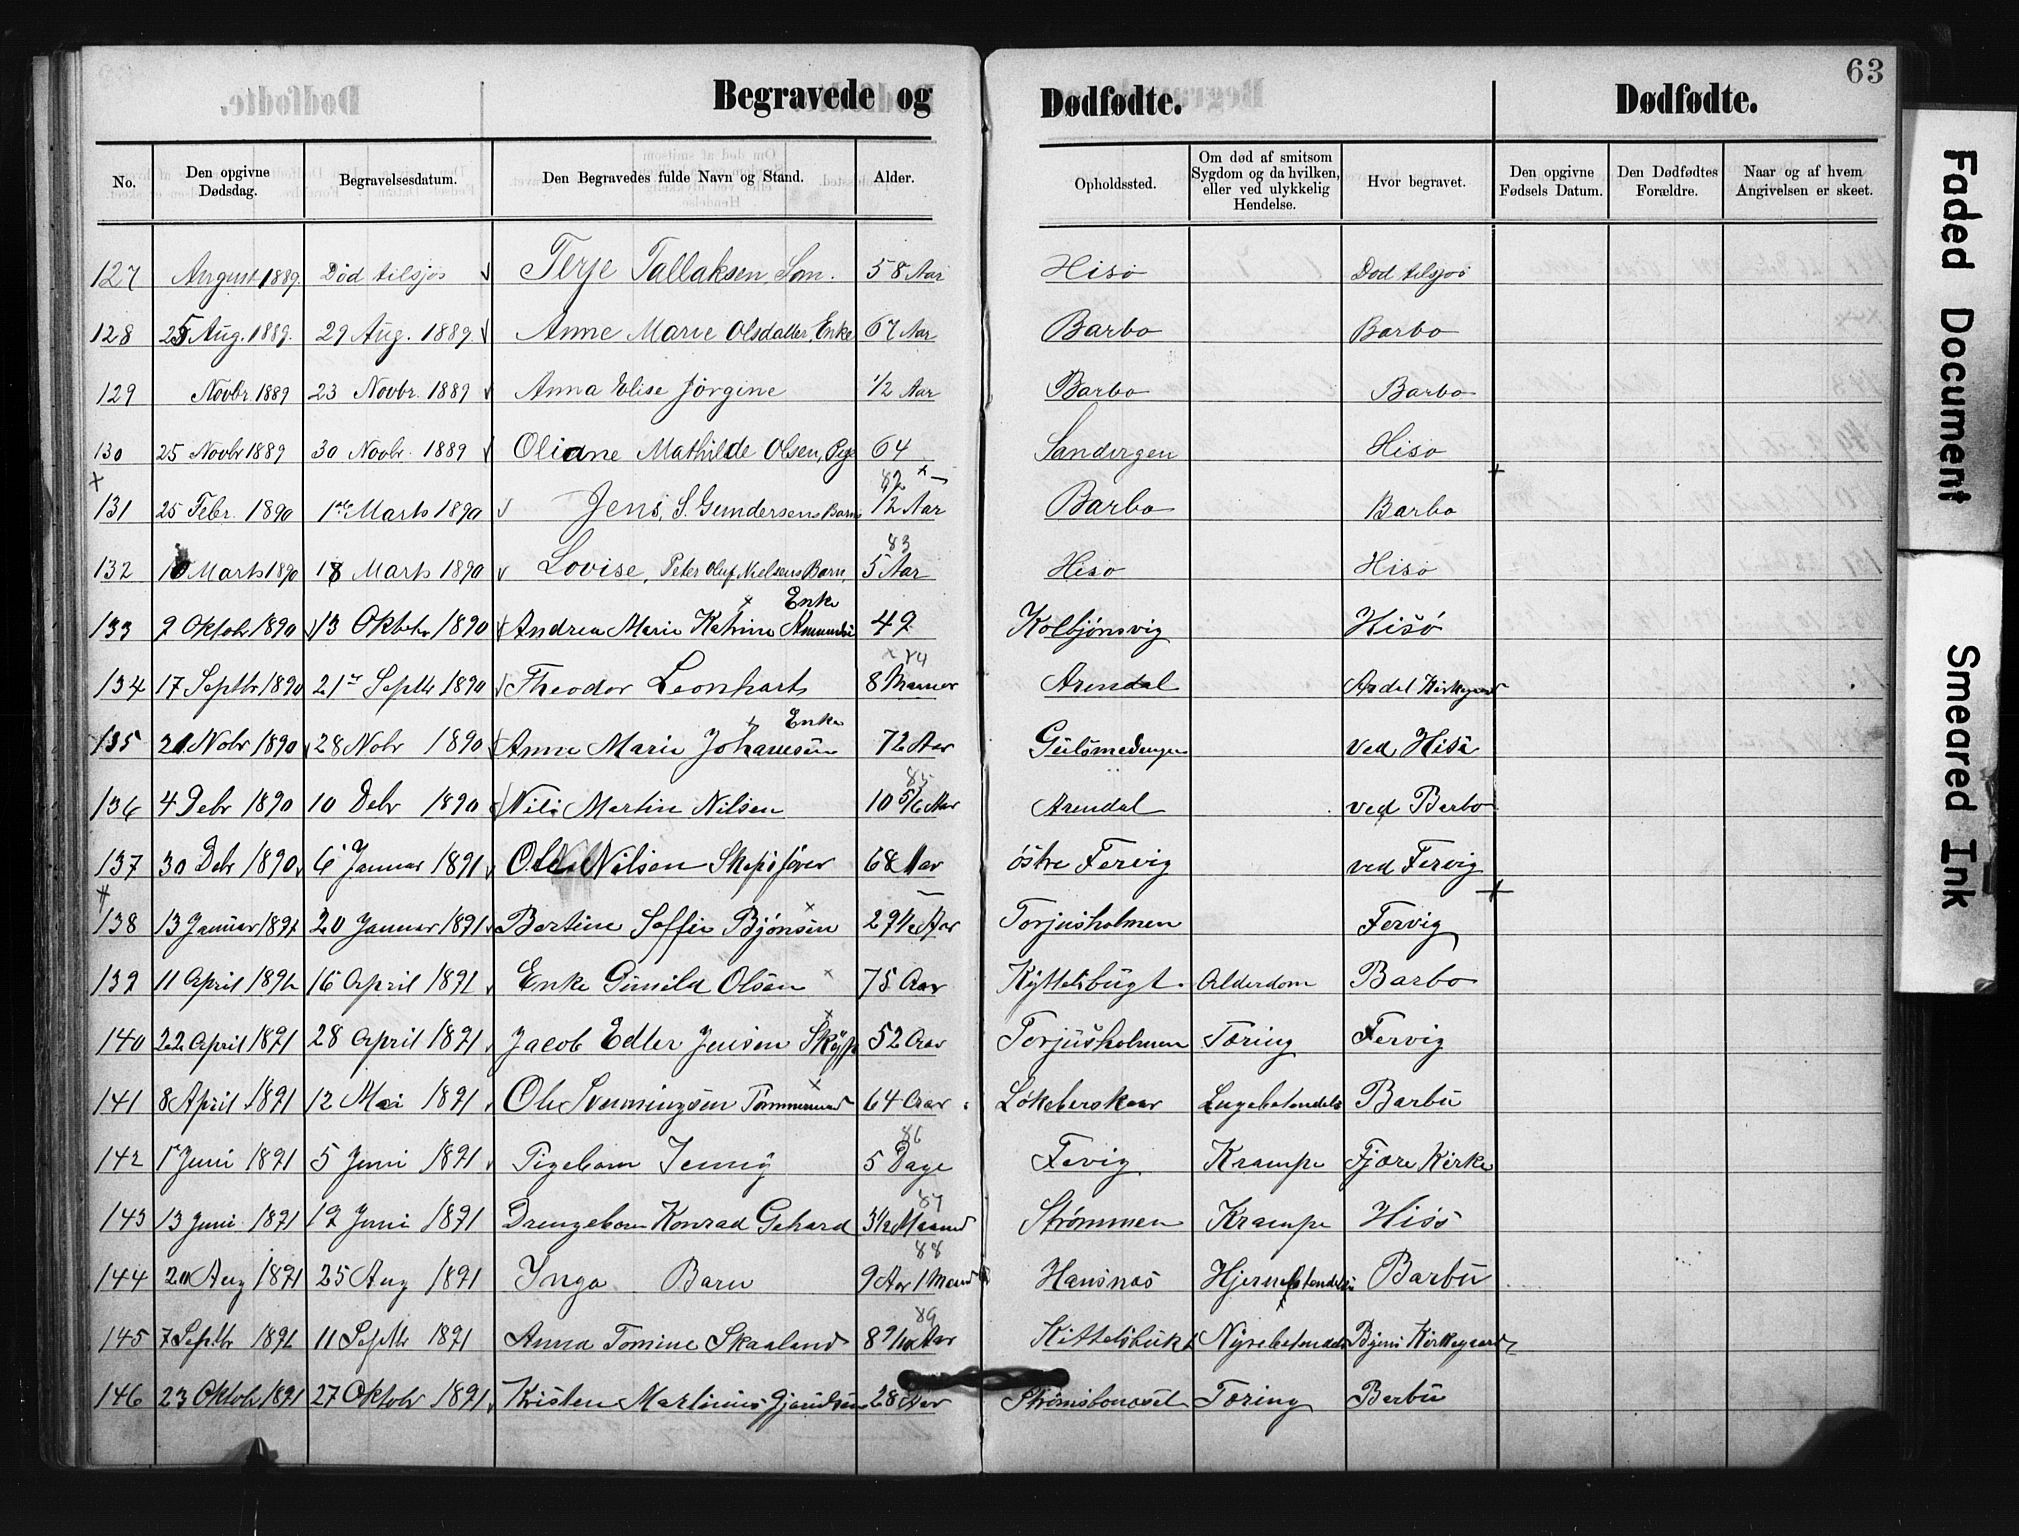 63
Begravede og Dødfødte. Dødfødte.
No. Den opgivne Dødsdag. Begravelsesdatum. Den Begravedes fulde Navn og Stand. Alder. Opholdssted. Om død af smitsom Sygdom og da hvilken, eller ved ulykkelig Hendelse. Hvor begravet. Den opgivne Fødsels Datum. Den Dødfødtes Forældre. Naar og af hvem Angivelsen er skeet.
127 August 1889. Död tilsjøs Terje Tallaksen, Søm. 58 Aar Hisö Död tilsjøs
128 25 Aug. 1889. 29 Aug. 1889. Anne Marie Olsdatter, Enke 67 Aar Barbo Barbo
129 Novbr 1889 23 Novbr. 1889 Anna Elise Jørgine 1/2 Aar Barbo Barbo
130 25 Novbr 1889 30 Novbr. 1889 Oliane Mathilde Olsen, Pige 64 Sandvigen Hisö
82
131 25 Febr. 1890 1ste Marts 1890 Jens, S. Gundersens Barn 1/2 Aar Barbo Barbo
83
132 10 Marts 1890 18 Marts 1890 Lovise, Peter Oluf Nielsens Barn, 5 Aar Hisö Hisö
Enke
133 9 Oktobr 1890 13 Oktobr 1890 Andrea Marie Katrine 49 Kolbjönsvig Hisö
84
134 17 Septbr 1890 21 Septbr 1890 Theodor Leonhart 8 Arendal Kirkegaard
Enke
135 21 Nobr 1890 28 Nobr 1890 Anne Marie Johannesen 72 Aar ved Hisö
85
136 4 Debr 1890 10 Debr 1890 Nils Martin Nilsen 10 5/6 Aar Arendal ved Barbo
137 30 Debr 1890 6 Januar 1891 Ole Nilsen Skipsfører 68 Aar östre Fervig ved Fervig
138 13 Januar 1891 20 Januar 1891 Bertine Soffie Bjönsen 29 1/2 Aar Torjusholmen Fervig
139 11 April 1891 16 April 1891 Enke Gunild Olsen 75 Aar Kyttelsbugt Alderdom Barbo
140 22 April 1891 28 April 1891 Jacob Edler Jensen 52 Aar Torjusholmen Tæring Fervig
141 8 April 1891 12 Mai 1891 Ole Svenningsen Tømmermand 64 Aar Lökeberskaar Barbu
86
142 1 Juni 1891 5 Juni 1891 Pigebarn Jenny 5 Dage Fevig Krampe Fjære Kirke
87
143 13 Juni 1891 19 Juni 1891 Drengebarn Konrad Gehard 3 1/2 Maaned Strømmen Krampe Hisö
88
144 20 Aug 1891 25 Aug 1891 Inga Barn 9 Aar 1 Maaned Hansnæs Barbu
89
145 7 Septbr 1891 11 Septbr 1891 Anna Tomine Skaaland 8 9/12 Aar Kittelsbukt Kirkegaard
146 23 Oktobr 1891 27 Oktobr 1891 Kristen Martinius 28 Aar Tæring Barbu
Faded Document
Smeared Ink